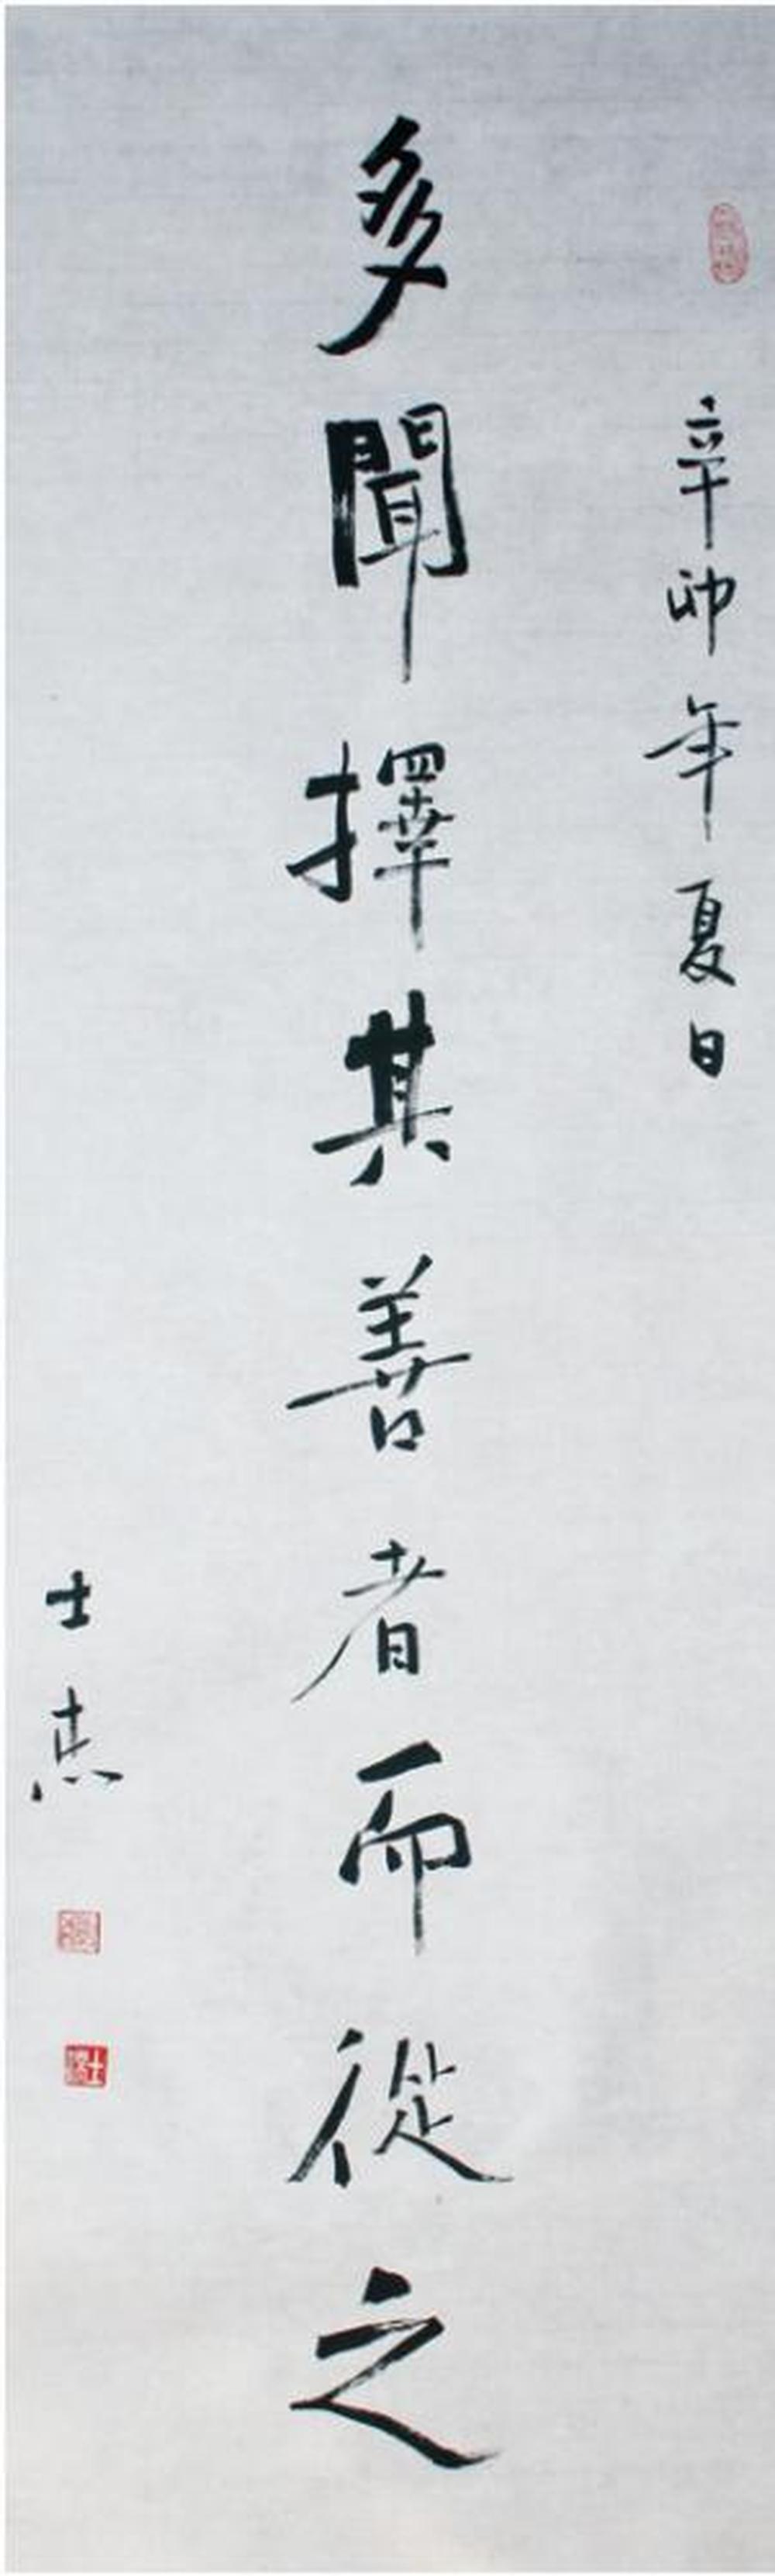 辛卯年夏日
多聞擇其善者而從之
士志